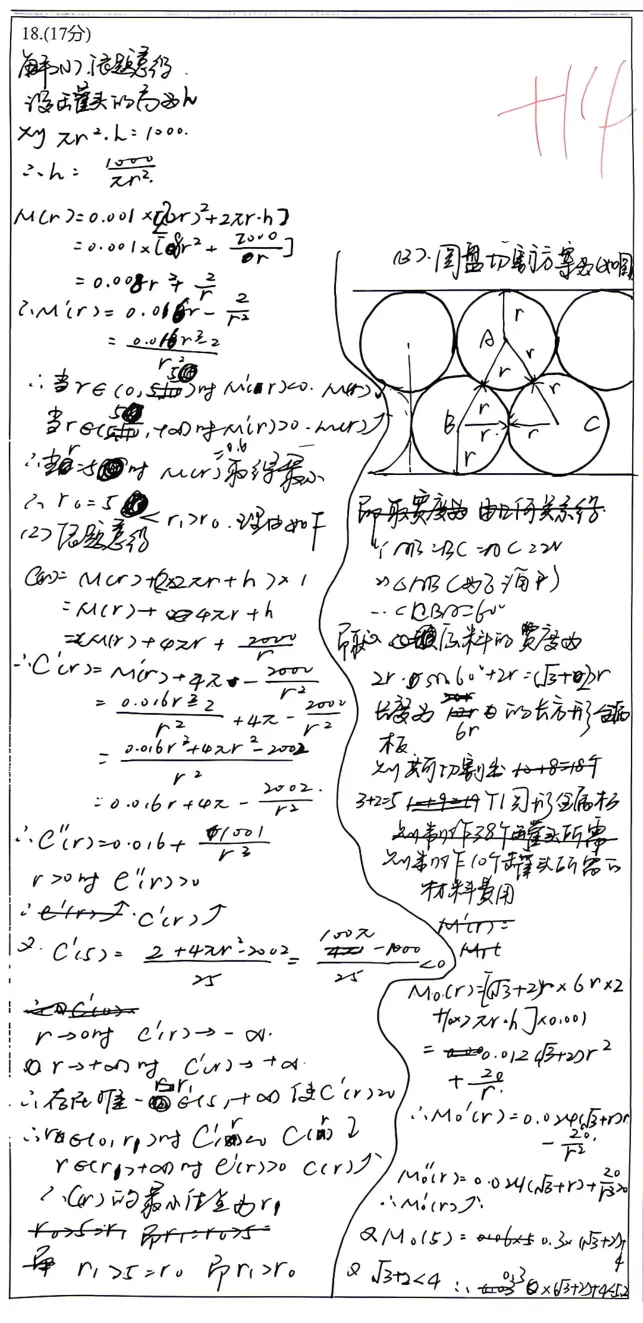 18.(17分)
解:(1).依题意得
设罐头的高为h
则 πr²·h=1000.
∴h= 1000/πr².
M(r)=0.001×[(2r)²+2πr·h]
=0.001×[8r²+ 2000/r]
=0.008r²+ 2/r
∴M'(r)=0.016r- 2/r²
= 0.016r³-2/r²
∴当r∈(0,5)时M'(r)<0. M(r)↓
当r∈(5,+∞)时M'(r)>0.M(r)↑
∴当r=5时 M(r)取得最小
=0.6
∴r₀=5
(2)依题意得 r₁>r₀.理由如下
C(r)=M(r)+(2×2πr+h)×1
=M(r)+4πr+h
=M(r)+4πr+ 2000/r
∴C'(r)=M'(r)+4π- 2000/r²
= 0.016r³-2/r² +4π- 2000/r²
= 0.016r³+4πr²-2002/r²
=0.016r+4π- 2002/r²
∴C''(r)=0.016+ 1001/r³
r>0时C''(r)>0
∴C'(r)↑
又C'(5)= 2+4πr²-2002/25 = 100π-1000/25 <0
r→0时 C'(r)→-∞.
r→+∞时 C'(r)→+∞.
∴存在唯一r₁∈(5,+∞)使C'(r)=0
∴r∈(0,r₁)时C'(r)<0 C(r)↓
r∈(r₁,+∞)时C'(r)>0 C(r)↑
∴C(r)的最小值点为r₁
r₁>5=r₀ 即r₁>r₀
(3).圆盘切割方案为(如图)
r
A
r
r
B
r
r
r
r
C
由几何关系得
∵AB=BC=AC=2r
∴△ABC为正三角形
∴∠CBA=60°
即取原料的宽度为
2r·sin60°+2r=(√3+2)r
长度为6r的长方形金属
板
则共可切割出
3+2=5个圆形金属板
则制作10个罐头所需的
材料费用
M₀(r)=[(√3+2)r×6r×2
+10×2πr·h]×0.001
=0.012(√3+2)r²
+ 20/r
∴M₀'(r)=0.024(√3+r)r
- 20/r²
M₀''(r)=0.024(√3+r)+ 20/r³>0
∴M₀'(r)↑.
又M₀(5)=0.3×(√3+2)+
4
又√3+2<4 ∴0.3×(√3+2)+4<5.2